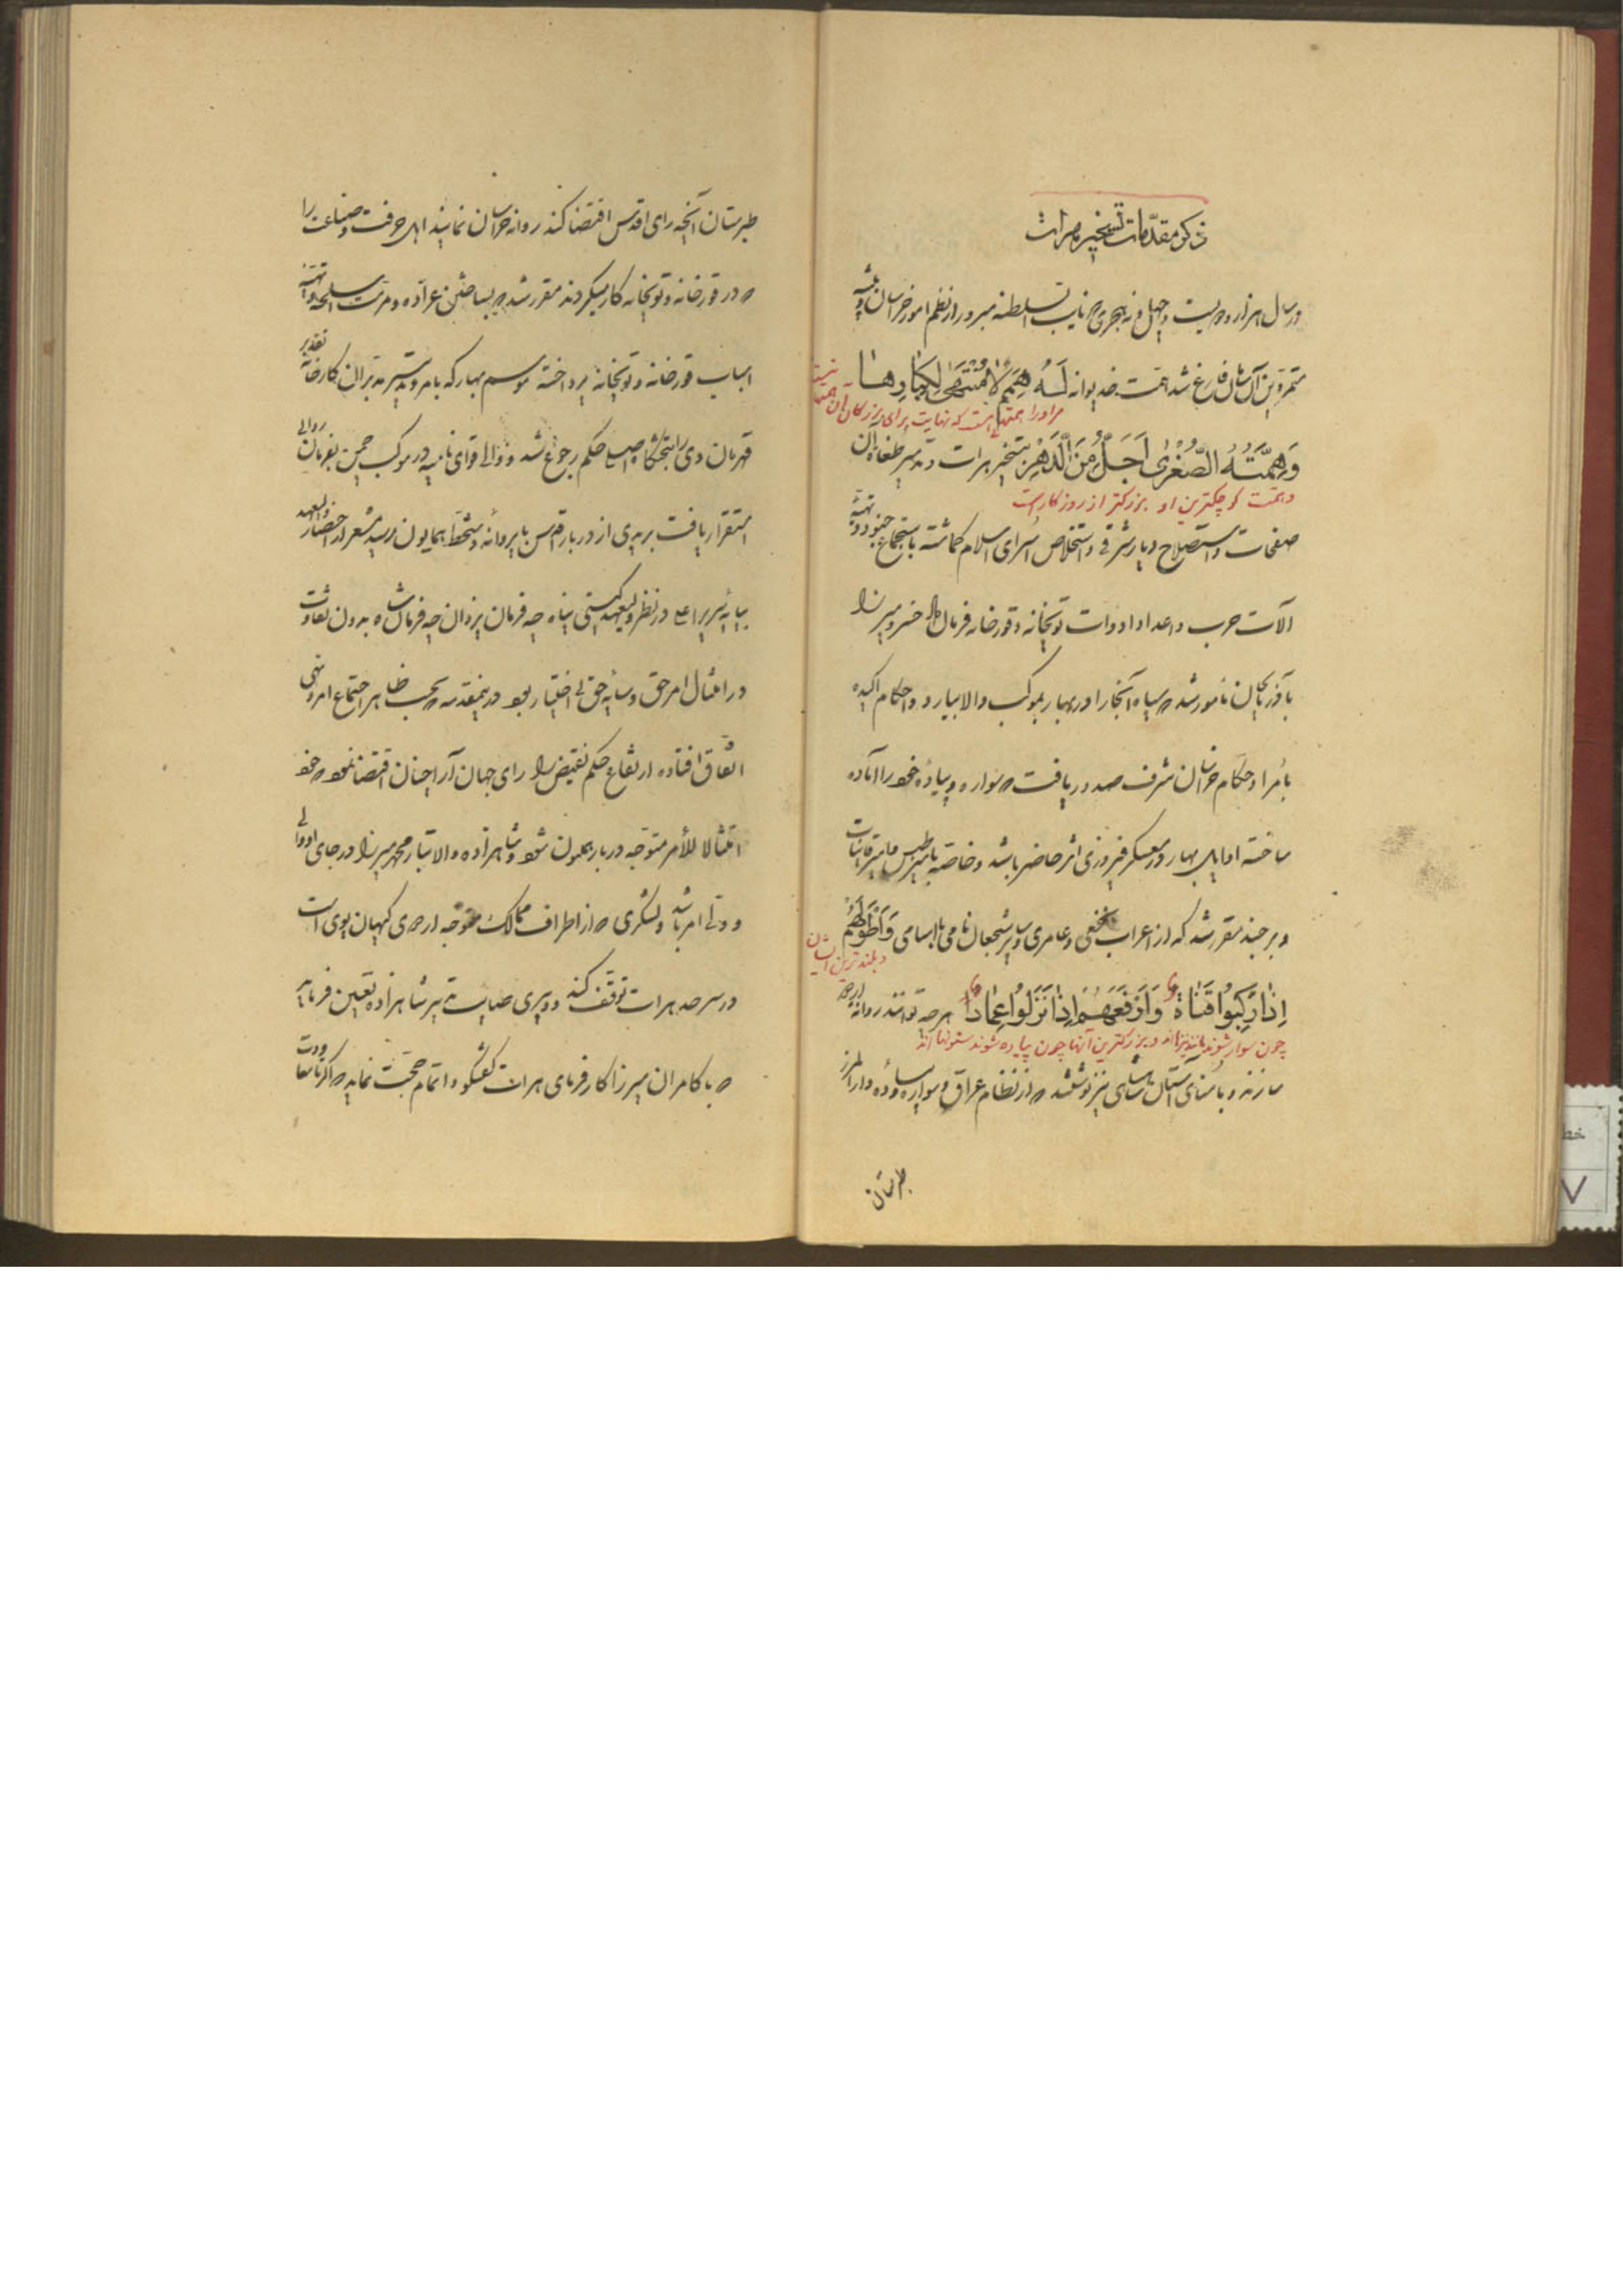 ذکر مقدّمات تسخیر هرات
در سال هزار و دویست و چهل و نه هجری که نایب السلطنه مبرور از نظم امور خراسان و تنبیه
متمرّدین آن سامان فارغ شد همّت خدیوانه لَهُ هِمَمٌ لا مُنْتَهیٰ لِکِبارِها
مر او را همتهائی است که نهایت برای بزرگان آن همتها نیست
وَهِمَّتُهُ الصُّغْریٰ اَجَلُّ مِنَ الدَّهْرِ بتسخیر هرات و تدمیر طغاة آن
و همت کوچکترین او بزرکتر از روزکار است
صفحات و استصلاح دیار شرقی و استخلاص اُسرای اسلام کماشته باستجماع جنود و تهیّهٔ
آلات حرب و اعداد ادوات توپخانه و قورخانه فرمان داد خسرو میرزا
بآذربایجان مأمور شد که سپاه آنجا را در بهار بموکب والا بیارد و احکام اکیده
باُمرا و حکام خراسان شرف صدور یافت که سواره و پیادهٔ خود را آماده
ساخته اوایل بهار در معسکر فیروزی اثر حاضر باشند و خاصّه بامیر طبس و امیر قاینات
و بیرجند مقرر شد که از اعراب نخعی و عامری و سایر شجعان نامی با اسامی وَاَطْوَلُهُم
و بلندترین ایشان
اِذا رَکِبُوا قَناةً وَاَرْفَعَهُم اِذا نَزَلُوا عِماداً هر چه توانند روانه اردو
چون سوار شوند مانند نیزه‌اند و بزرکترین آنها چون پیاده شوند ستونها اند
سازند و باُمنای آستان شاهی نیز نوشتند که از نظام عراق و سوار ساوه و دارالمرز
طبرستان
طبرستان آنچه رای اقدس اقتضا کند روانه خراسان نمایند اهل حرفت و صناعت را
که در قورخانه و توپخانه کار میکردند مقرر شد که بساختن عراده و مرمّت اسلحه و تهیّه
اسباب قورخانه و توپخانه پرداخته موسم بهار که بامر و تدبیر مدبّران کارخانه تقدیر
قهرمان دی را بتختگاه اصلی حکم رجوع شد و والی قوای نامیه در موکب چمن بفرمان روائی
استقرار یافت بریدی از دربار اقدس با پروانه و دستخط همایون رسید مشعر از احضار ولیعهد
بپایهٔ سریر اعلی در نظر ولیعهد گیتی پناه چه فرمان یزدان چه فرمان شاه بدون تفاوت
در امتثال امر حق و سایه حق بی اختیار بود در اینمقدمه که بحسب ظاهر اجتماع امر و نهی
اتفاق افتاده ارتفاع حکم نقیض را رای جهان آرا چنان اقتضا نمود که خود
امتثالا للأمر متوجه دربار همایون شود و شاهزاده والاتبار محمد میرزا در جای او والی
و ولی امر باشد و لشکری که از اطراف ممالک متوجه اردوی کیهان پوی است
در سرحد هرات توقف کند و دبیری صایب تدبیر شاهزاده تعیین فرماید
که با کامران میرزا کارفرمای هرات گفتگو و اتمام حجّت نماید که اگر